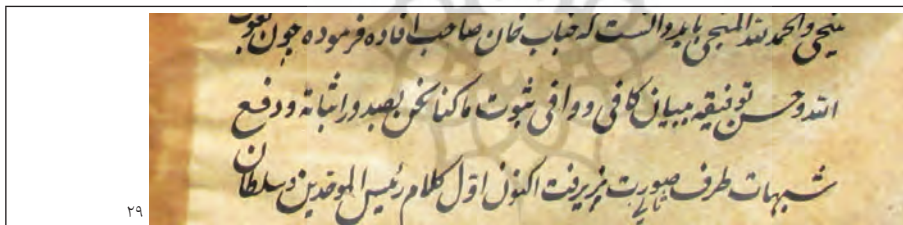 ینجی والحمد لله المنجی باید دانست که جناب خان صاحب افاده فرموده چون بعون
الله و حسن توفیقه ببیان کافی و وافی ثبوت ما کنا نحن بصدد اثباته و دفع
شبهات طرف ثانی صورت پذیرفت اکنون اول کلام رئیس الموحدین و سلطان
۲۹